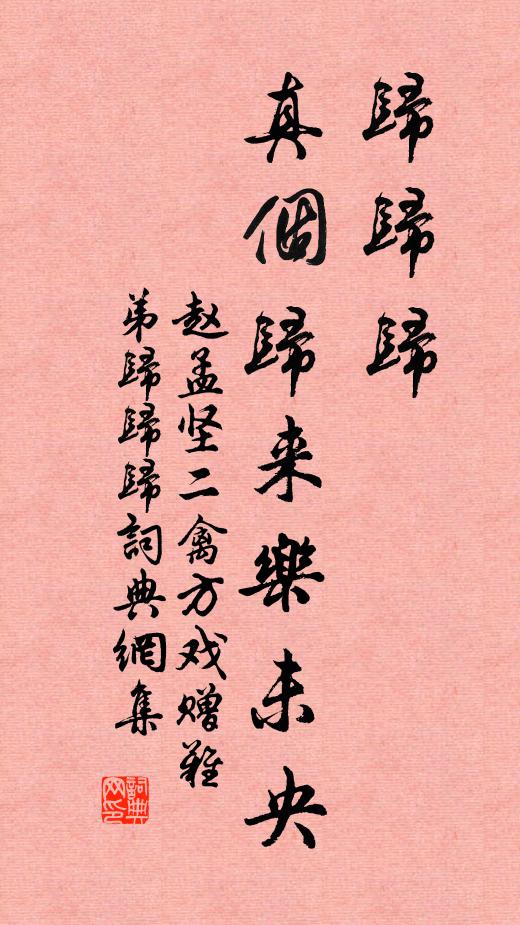 歸歸歸
真個歸来樂未央
赵孟坚二禽方戏赠难
弟歸歸歸詞典網集
詞典
网印